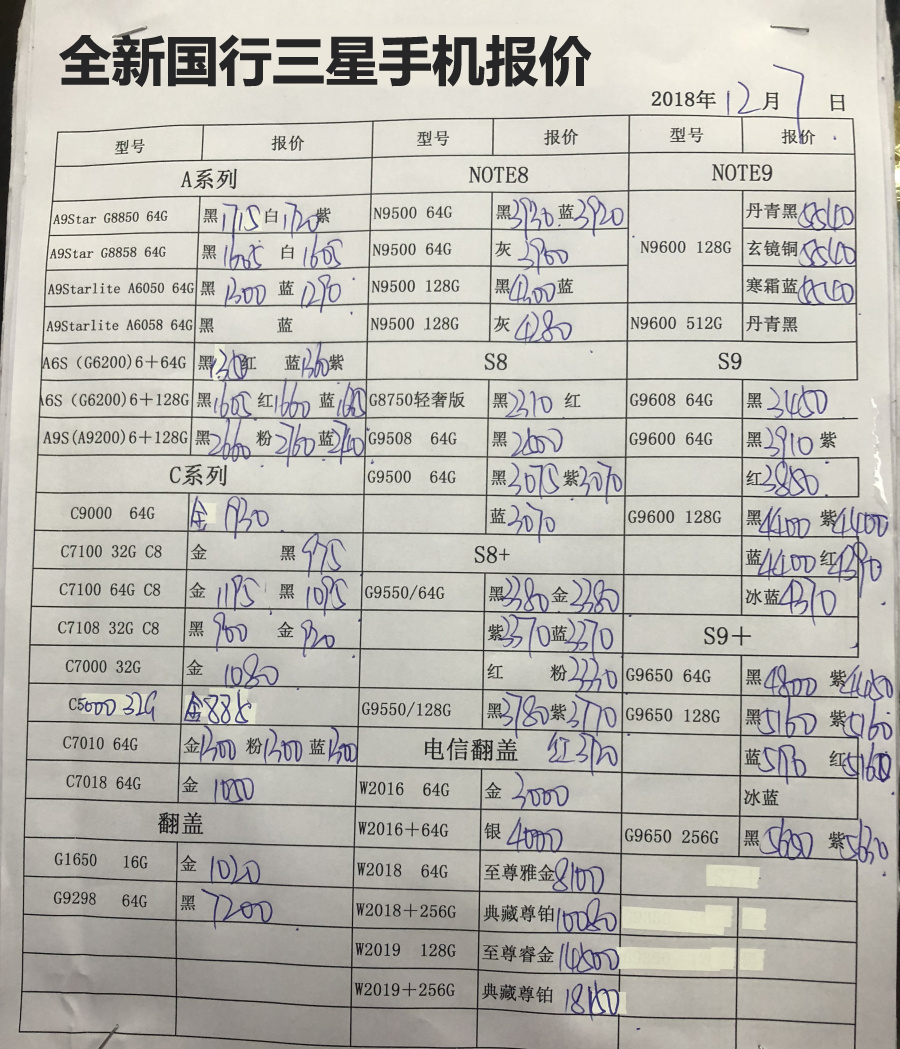 全新国行三星手机报价
2018年 12月 7 日
型号 报价 型号 报价 型号 报价
A系列 NOTE8 NOTE9
A9Star G8850 64G 黑1715 白1720 紫 N9500 64G 黑3930 蓝3920 N9600 128G 丹青黑5540
A9Star G8858 64G 黑1605 白1605 N9500 64G 灰3900 玄镜铜5540
A9Starlite A6050 64G 黑1300 蓝1290 N9500 128G 黑4300 蓝 寒霜蓝5540
A9Starlite A6058 64G 黑 蓝 N9500 128G 灰 4280 N9600 512G 丹青黑
A6S（G6200)6+64G 黑 红 蓝1360 紫 S8 S9
A6S (G6200)6+128G 黑1605 红1660 蓝 G8750轻奢版 黑2310 红 G9608 64G 黑 3450
A9S(A9200)6+128G 黑2660 粉2760 蓝2740 G9508 64G 黑2600 G9600 64G 黑3910 紫
C系列 G9500 64G 黑3075 紫3070 红3850
C9000 64G 金 930 蓝3070 G9600 128G 黑4400 紫4400
C7100 32G C8 金 黑 975 S8+ 蓝4400 红4390
C7100 64G C8 金 1195 黑 1095 G9550/64G 黑3380 金3380 冰蓝4370
C7108 32G C8 黑 900 金 920 紫3370 蓝3370 S9＋
C7000 32G 金 1080 红 粉3330 G9650 64G 黑4800 紫
C5000 32G 金885 G9550/128G 黑3780 紫3770 G9650 128G 黑5160 紫5160
C7010 64G 金1300 粉1300 蓝1300 电信翻盖 红3720 蓝5170 红5160
C7018 64G 金 1050 W2016 64G 金 3000 冰蓝
翻盖 W2016＋64G 银 4000 G9650 256G 黑5600 紫5630
G1650 16G 金 1020 W2018 64G 至尊雅金8100
G9298 64G 黑 7200 W2018＋256G 典藏尊铂10080
W2019 128G 至尊睿金14500
W2019＋256G 典藏尊铂 18150